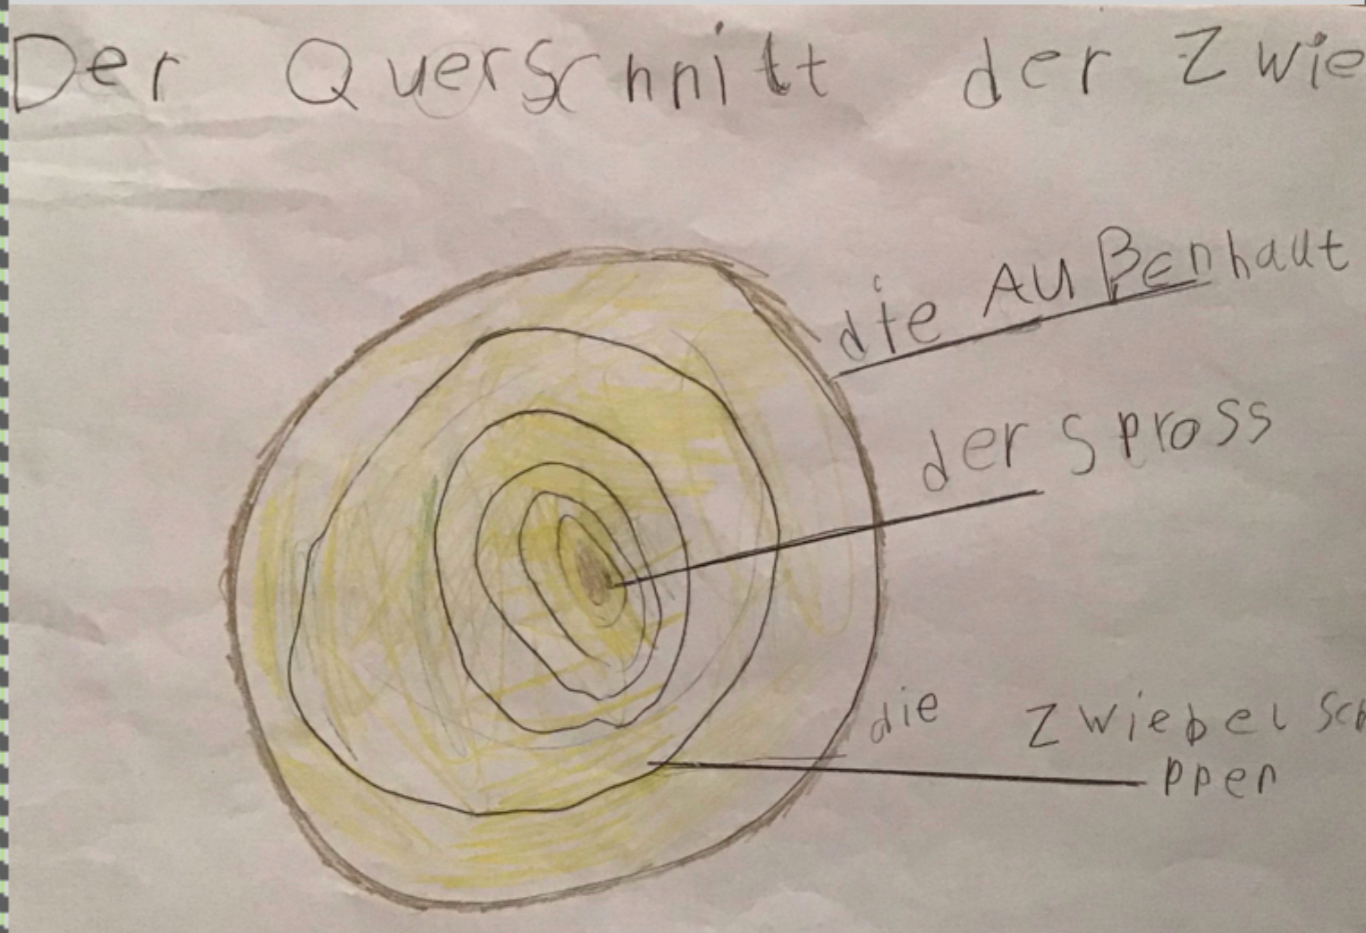 Der Querschnitt der Zwie
die Außenhaut
der Spross
die Zwiebelsch
ppen